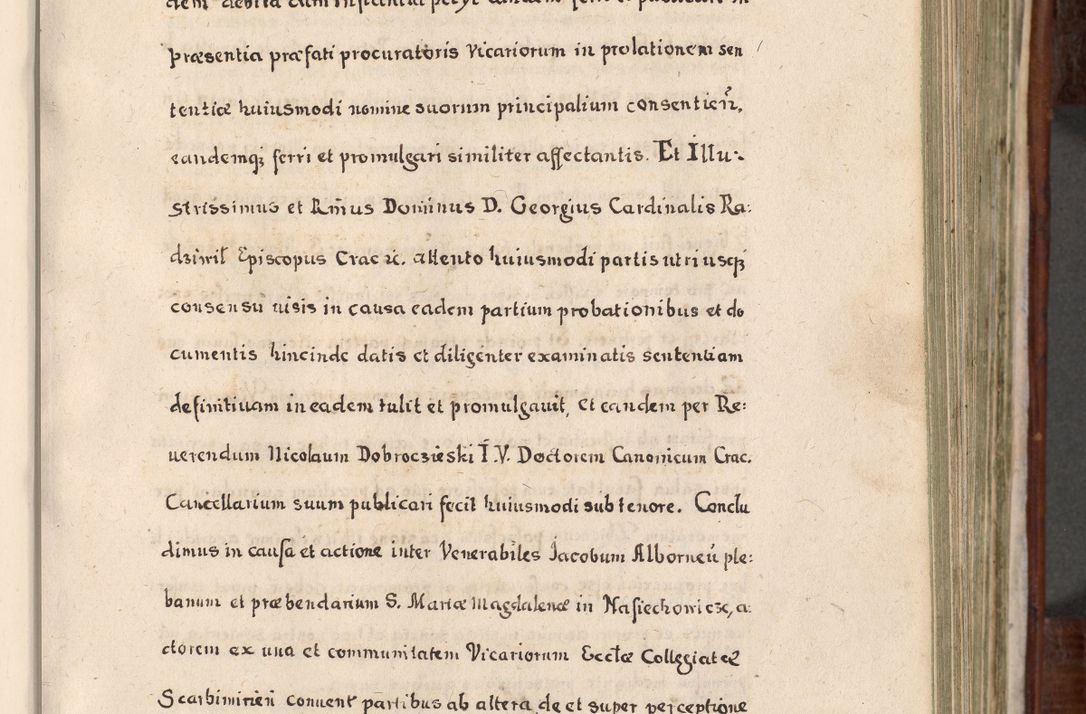 dem debita cum instantia petijt eandem ferri et publicari in
præsentia præfati procuratoris Vicariorum in prolationem sen
tentiæ huiusmodi nomine suorum principalium consentien̄,
eandemq; ferri et promulgari similiter affectantis. Et Illu-
strissimus et Rm̄us Dominus D. Georgius Cardinalis Ra:
dziwil Episcopus Crac &c. attento huiusmodi partis utriusq;
consensu uisis in causa eadem partium probationibus et do
cumentis hincinde datis et diligenter examinatis sententiam
definitiuam in eadem tulit et promulgauit, Et eandem per Re:
uerendum Nicolaum Dobroczieski I.V. Doctorem Canonicum Crac.
Cancellarium suum publicari fecit huiusmodi sub tenore. Conclu
dimus in causa et actione inter Venerabiles Jacobum Alborneū ple:
banum et præbendarium S. Mariæ Magdalenæ in Nasiechowicze, a:
ctorem ex una et communitatem Vicariorum Eccłæ Collegiatæ
Scarbimirien̄ conuent partibus ab altera de et super perceptione